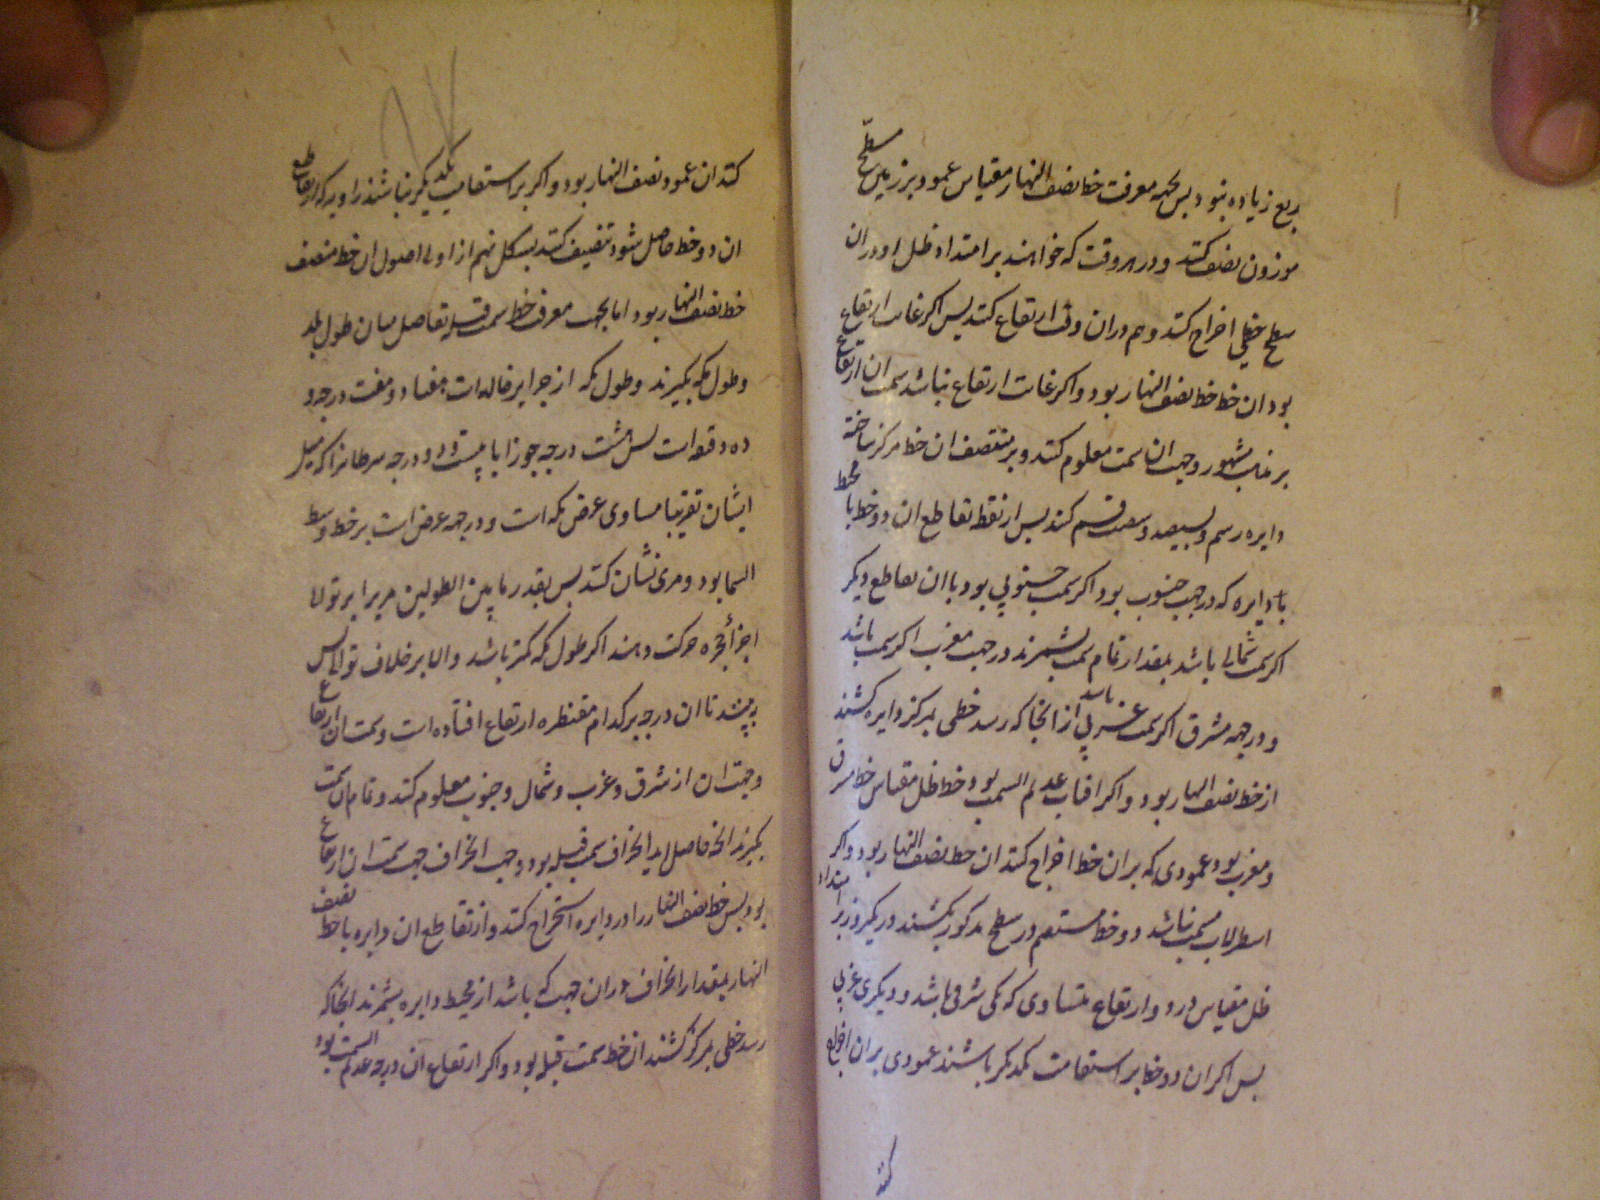 ربع زیاده نبود پس بجهة معرفت خط نصف النهار مقیاس عمود بر زمین مسطح
موزون نصف کنند و در هر وقت که خواهند بر امتداد ظل او در ان
سطح خطی اخراج کنند و هم در ان وقت ارتقاع کنند پس اکر غایت ارتفاع
بود ان خط خط نصف النهار بود و اکر غایت ارتفاع نباشد سمت ان ارتفاع
و جهت ان سمت معلوم کنند و بر منتصف ان خط مرکز ساخته
دایره رسم و بسیصد و شصت قسم کنند پس از نقطه تقاطع ان دو خط با محیط
دایره که در جهت جنوب بود اکر سمت جنوبی بود با ان تقاطع دیکر
اکر سمت شمالی باشد بمقدار تمام سمت بشمرند در جهت مغرب اکر سمت باشد
و در جهة مشرق اکر سمت غربی باشد از انجا که رسد خطی بمرکز دایره کشند
از خط نصف النهار بود و اکر افتاب عدیم السمت بود خط ظل مقیاس خط مشرق
و مغرب بود عمودی که بر ان خط اخراج کنند ان خط نصف النهار بود و اکر
اسطرلاب مسمت نباشد دو خط مستقیم در سطح مذکور بکشند در یکروز بر امتداد
ظل مقیاس در دو ارتفاع متساوی که یکی شرقی باشد و دیکری غربی
پس اکر ان دو خط بر استقامت یکدیکر باشند عمودی بر ان اخراج
کنند
کنند ان عمود نصف النهار بود و اکر بر استقامت یکدیکر نباشند زاویه که از تقاطع
ان دو خط حاصل شود تنصیف کنند بشکل نهم از اولی اصول ان خط منصف
خط نصف النهار بود اما بجهت معرفت خط سمت قبله تفاضل میان طول بلد
و طول مکه بکیرند و طول مکه از جزایر خالدات هفتاد و هفت درجه و
ده دقیقه است پس هشت درجه جوزا یا بیست و درجه سرطان را که میل
ایشان تقریبا مساوی عرض مکه است و درجه عرض است بر خط وسط
السما بود و مری نشان کنند پس بقدر ما بین الطولین مری را بر توالا
اجزأ حجره حرکت دهند اکر طول مکه کمتر باشد و الا بر خلاف توالی پس
به بینند تا ان درجه بر کدام مقنطره ارتفاع افتاده است و سمت ان ارتفاع
و جهت ان از شرق و غرب و شمال و جنوب معلوم کنند و تمام ان سمت
بکیرند انچه حاصل اید انحراف سمت قبله بود و جهت انحراف جهت سمت ان ارتفاع
بود پس خط نصف النهار را در دایره استخراج کنند و از تقاطع ان دایره با خط نصف
النهار بمقدار انحراف در ان جهت که باشد از محیط دایره بشمرند انجا که
رسد خطی بمرکز کشند ان خط سمت قبله بود و اکر ارتفاع ان درجه عدیم السمت بود